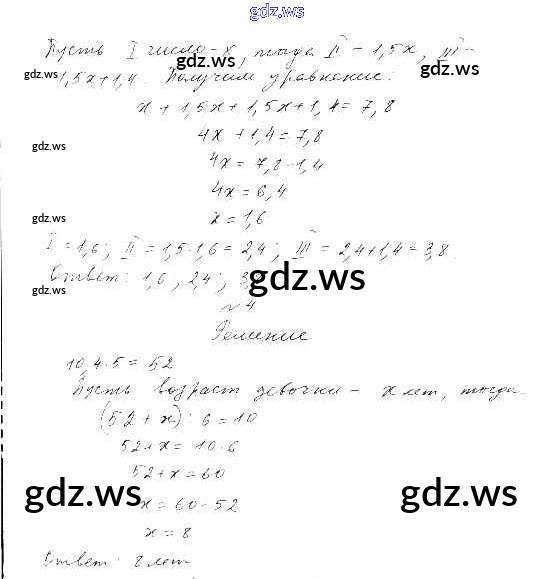 gdz.ws
Пусть I число - x, тогда II - 1,5x, III -
gdz.ws
gdz.ws
gdz.ws
1,5x+1,4. Получим уравнение:
x + 1,5x + 1,5x + 1,4 = 7,8
4x + 1,4 = 7,8
gdz.ws
4x = 7,8 - 1,4
4x = 6,4
gdz.ws
x = 1,6
I = 1,6; II = 1,5·1,6 = 2,4; III = 2,4+1,4 = 3,8.
gdz.ws
Ответ: 1,6; 2,4; 3,8
gdz.ws
№ 4
Решение
10,4·5 = 52
Пусть возраст девочки - x лет, тогда
(52 + x) : 6 = 10
52 + x = 10·6
52 + x = 60
gdz.ws
gdz.ws
gdz.ws
x = 60 - 52
x = 8
Ответ: 8 лет